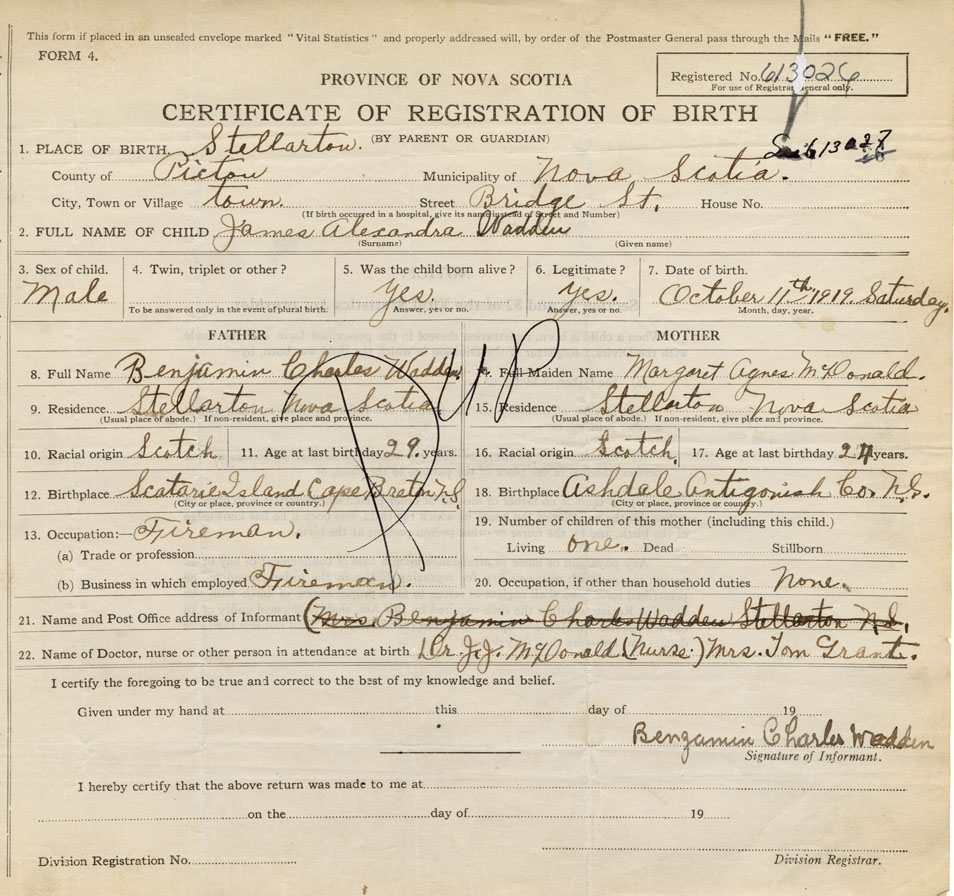 This form if placed in an unsealed envelope marked "Vital Statistics" and properly addressed will, by order of the Postmaster General pass through the Mails "FREE."
FORM 4.
Registered No. 613026
For use of Registrar General only.
PROVINCE OF NOVA SCOTIA
CERTIFICATE OF REGISTRATION OF BIRTH
(BY PARENT OR GUARDIAN)
613027
1. PLACE OF BIRTH Stellarton.
County of Pictou Municipality of Nova Scotia.
City, Town or Village town. Street Bridge St. House No.
(If birth occurred in a hospital, give its name instead of Street and Number)
2. FULL NAME OF CHILD James Alexandra Wadden
(Surname) (Given name)
3. Sex of child. 4. Twin, triplet or other? 5. Was the child born alive? 6. Legitimate? 7. Date of birth.
Male Yes. Yes. October 11th 1919. Saturday.
To be answered only in the event of plural birth. Answer, yes or no. Answer, yes or no. Month, day, year.
FATHER MOTHER
8. Full Name Benjamin Charles Wadden 14. Full Maiden Name Margaret Agnes McDonald.
9. Residence. Stellarton Nova Scotia 15. Residence Stellarton Nova Scotia
(Usual place of abode. If non-resident, give place and province. (Usual place of abode). If non-resident, give place and province.
10. Racial origin Scotch 11. Age at last birthday 29. years. 16. Racial origin Scotch. 17. Age at last birthday 24 years.
12. Birthplace Scatarie Island Cape Breton N.S. 18. Birthplace Ashdale Antigonish Co. N.S.
(City or place, province or country.) (City or place, province or country.)
DUP
13. Occupation:— Fireman. 19. Number of children of this mother (including this child.)
(a) Trade or profession Living one. Dead Stillborn
(b) Business in which employed Fireman. 20. Occupation, if other than household duties None.
21. Name and Post Office address of Informant (Mrs. Benjamin Charles Wadden Stellarton N.S.
22. Name of Doctor, nurse or other person in attendance at birth Dr. J.J. McDonald (Nurse) Mrs. Tom Grant.
I certify the foregoing to be true and correct to the best of my knowledge and belief.
Given under my hand at this day of 19
Benjamin Charles Wadden
Signature of Informant.
I hereby certify that the above return was made to me at
on the day of 19
Division Registration No.
Division Registrar.